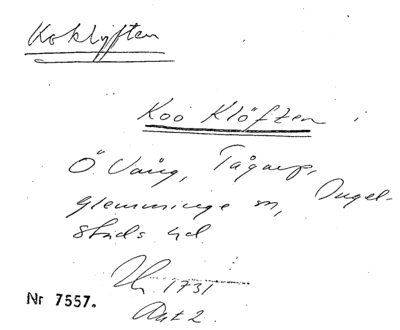 Koklyften
Koo Klöften i
Ö Vång, Tågarp,
Glemminge sn, Ingel-
stads hd
1731
Nr 7557.
Akt 2